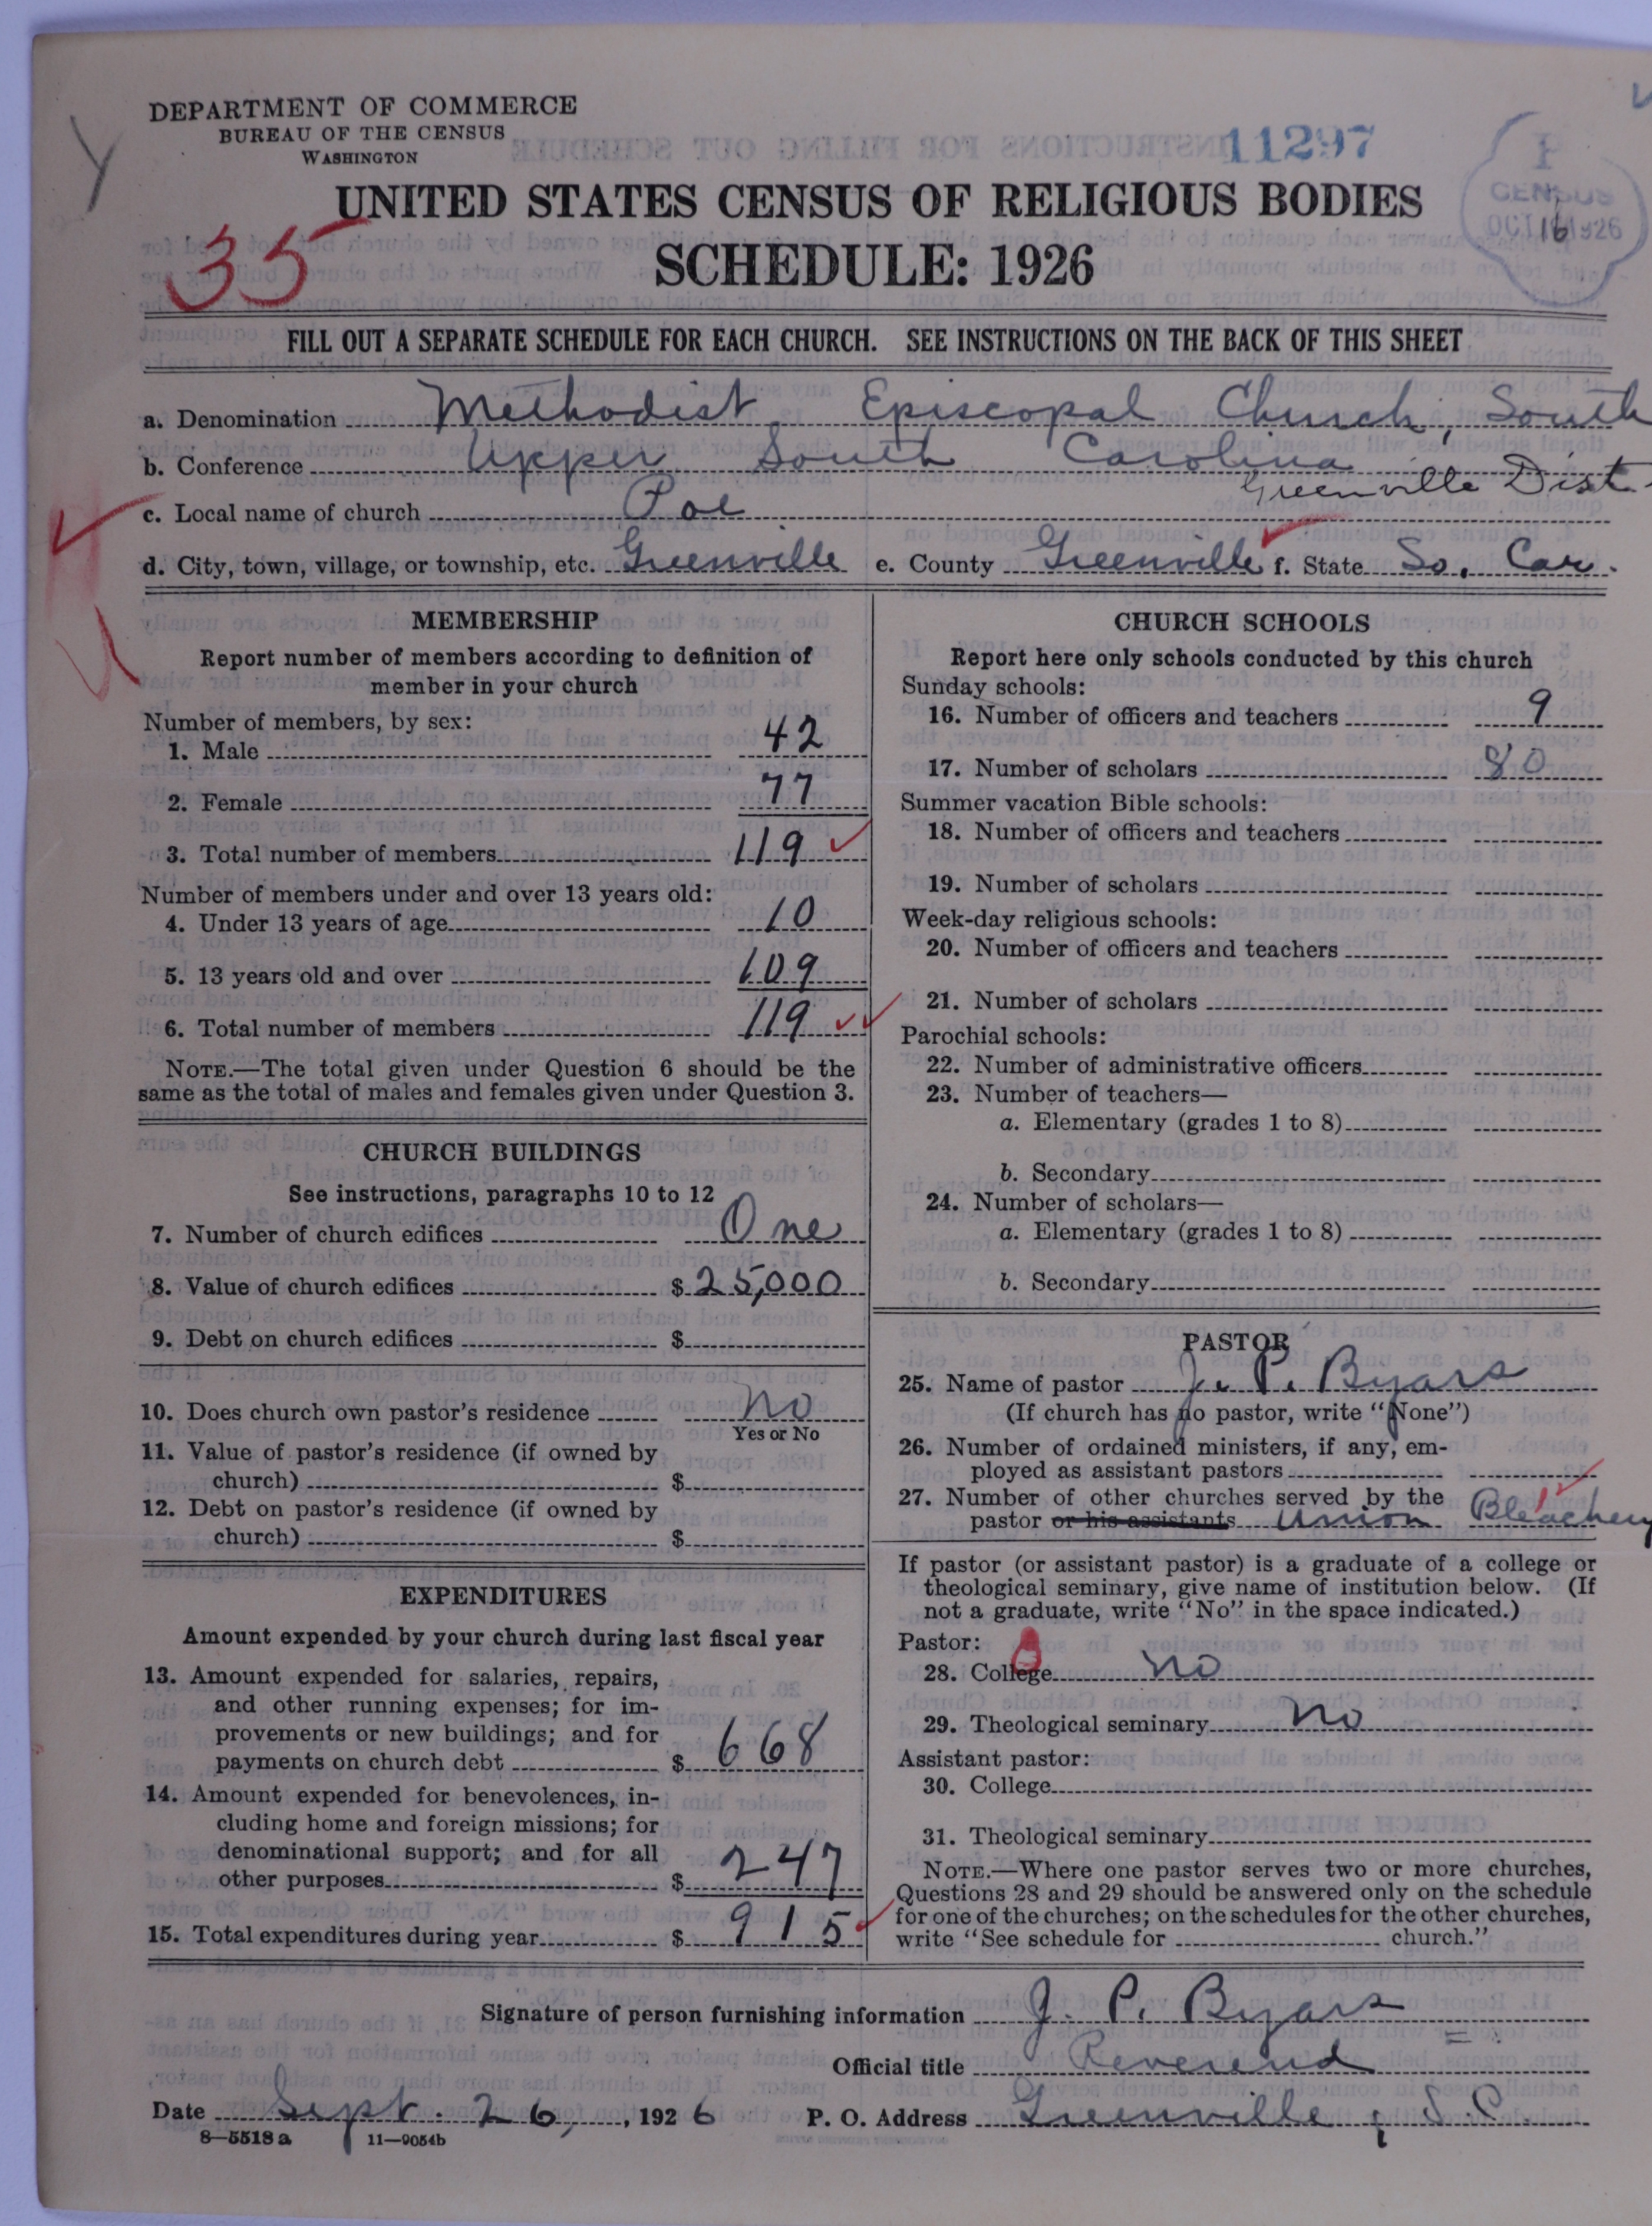 DEPARTMENT OF COMMERCE
BUREAU OF THE CENSUS
WASHINGTON
11297
CENSUS
OCT 16 1926
UNITED STATES CENSUS OF RELIGIOUS BODIES
35
SCHEDULE: 1926
FILL OUT A SEPARATE SCHEDULE FOR EACH CHURCH. SEE INSTRUCTIONS ON THE BACK OF THIS SHEET
a. Denomination Methodist Episcopal Church, South
b. Conference Upper South Carolina
Greenville Dist.
c. Local name of church Poe
d. City, town, village, or township, etc. Greenville e. County Greenville f. State So. Car.
MEMBERSHIP
Report number of members according to definition of
member in your church
Number of members, by sex:
1. Male 42
2. Female 77
3. Total number of members 119
Number of members under and over 13 years old:
4. Under 13 years of age 10
5. 13 years old and over 109
6. Total number of members 119
NOTE.—The total given under Question 6 should be the
same as the total of males and females given under Question 3.
CHURCH BUILDINGS
See instructions, paragraphs 10 to 12
7. Number of church edifices One
8. Value of church edifices $ 25,000
9. Debt on church edifices $
10. Does church own pastor's residence No
Yes or No
11. Value of pastor's residence (if owned by
church) $
12. Debt on pastor's residence (if owned by
church) $
EXPENDITURES
Amount expended by your church during last fiscal year
13. Amount expended for salaries, repairs,
and other running expenses; for im-
provements or new buildings; and for
payments on church debt $ 668
14. Amount expended for benevolences, in-
cluding home and foreign missions; for
denominational support; and for all
other purposes $ 247
15. Total expenditures during year $ 915
CHURCH SCHOOLS
Report here only schools conducted by this church
Sunday schools:
16. Number of officers and teachers 9
17. Number of scholars 80
Summer vacation Bible schools:
18. Number of officers and teachers
19. Number of scholars
Week-day religious schools:
20. Number of officers and teachers
21. Number of scholars
Parochial schools:
22. Number of administrative officers
23. Number of teachers—
a. Elementary (grades 1 to 8)
b. Secondary
24. Number of scholars—
a. Elementary (grades 1 to 8)
b. Secondary
PASTOR
25. Name of pastor J. P. Byars
(If church has no pastor, write "None")
26. Number of ordained ministers, if any, em-
ployed as assistant pastors
27. Number of other churches served by the
pastor or his assistants Union Bleachery
If pastor (or assistant pastor) is a graduate of a college or
theological seminary, give name of institution below. (If
not a graduate, write "No" in the space indicated.)
Pastor:
28. College No
29. Theological seminary No
Assistant pastor:
30. College
31. Theological seminary
NOTE.—Where one pastor serves two or more churches,
Questions 28 and 29 should be answered only on the schedule
for one of the churches; on the schedules for the other churches,
write "See schedule for church."
Signature of person furnishing information J. P. Byars
Official title Reverend
Date Sept. 26, 1926 P. O. Address Greenville, S.C.
8—5518 a 11—9054b